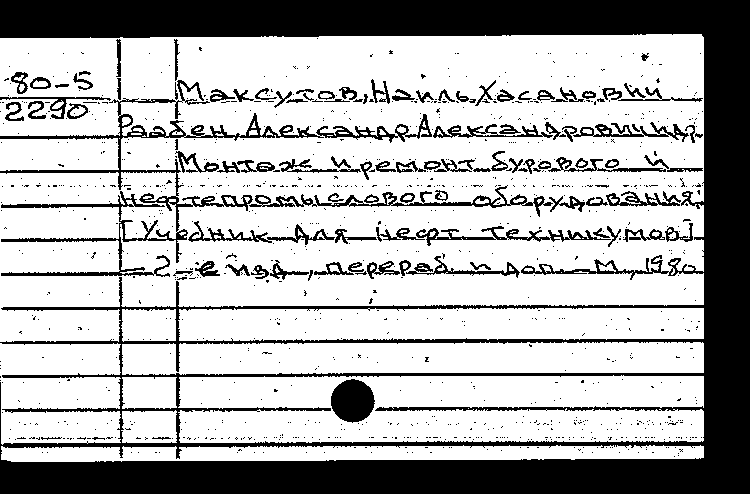 80-5
2290
Максутов, Наиль Хасанович
Раабен, Александр Александрович и др.
Монтаж и ремонт бурового и
нефтепромыслового оборудования:
[Учебник для нефт. техникумов]
= 2-е изд., перераб. и доп. – М., 1980